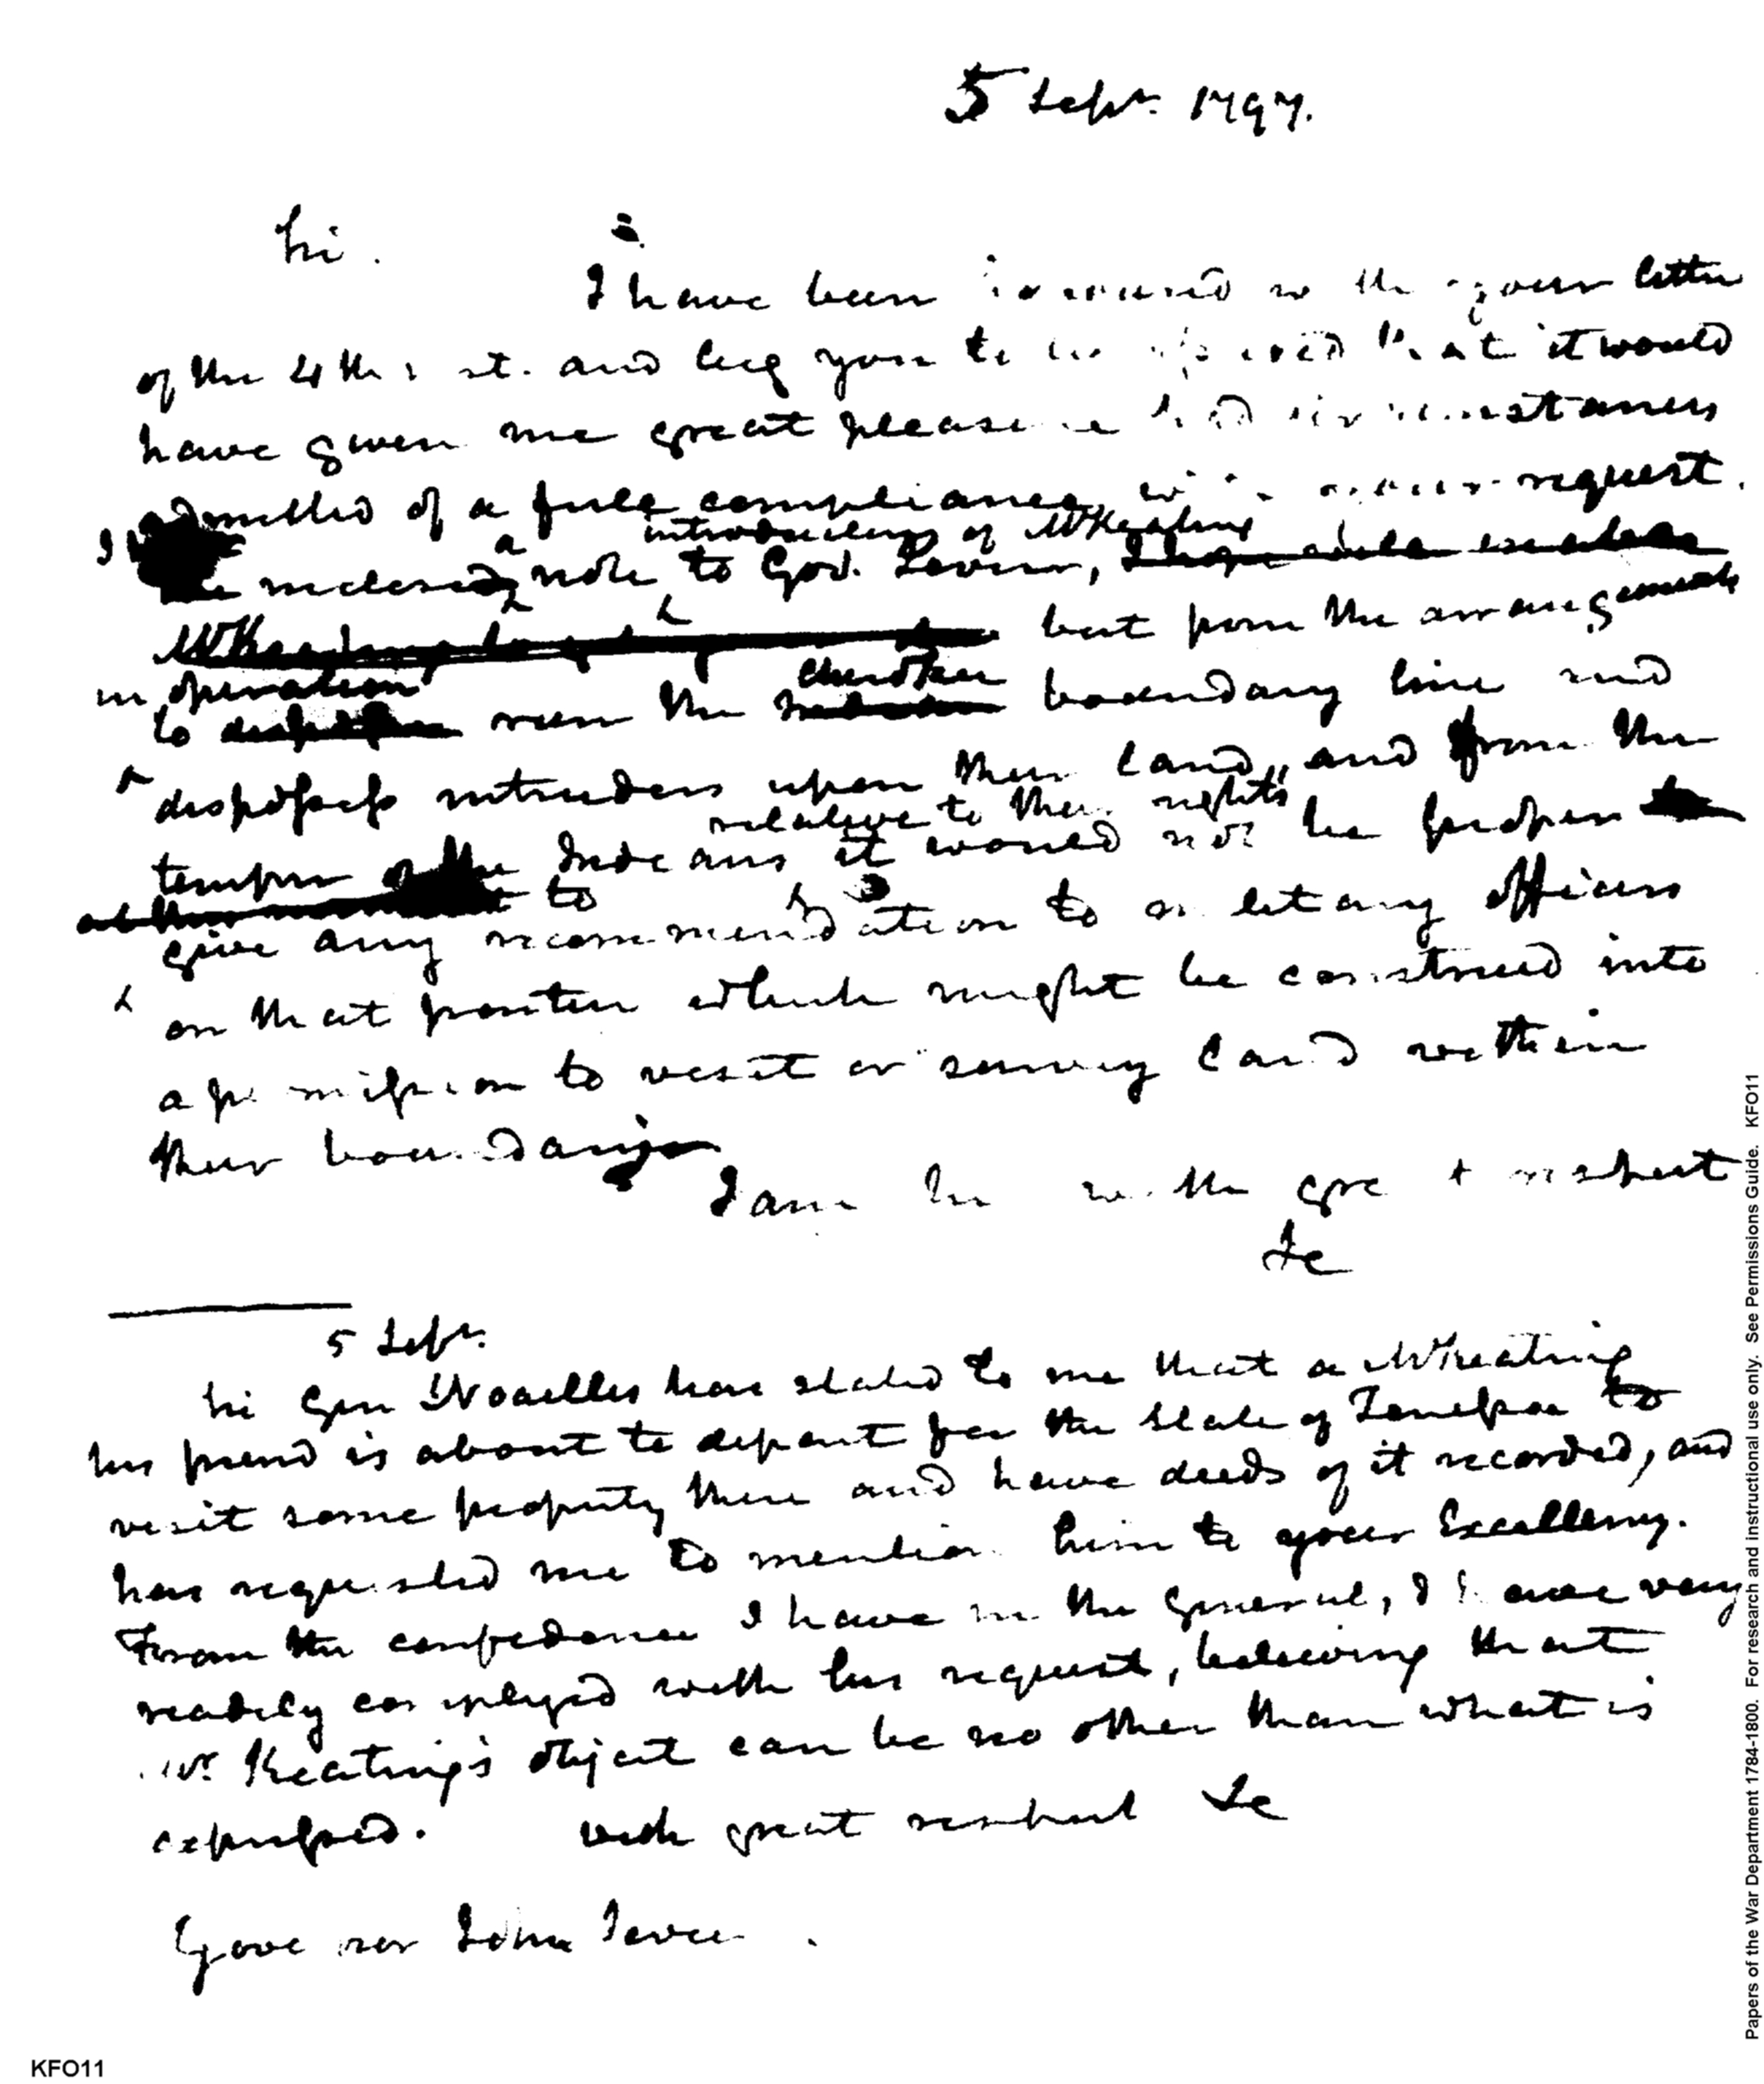 5 Sept. 1797.
Sir.
I have been favoured with your letter
of the 4th inst. and beg you to be assured that it would
have given me great pleasure had circumstances
admitted of a full compliance with your request.
I inclosed a note to Gov. Sevier, introductory of Mr Keating
but from the arrangements
in operation
to run the Cherokee boundary line and
dispossess intruders upon their land, and from the
temper of the Indians relative to their rights it would not be proper
to
give any recommendation to or let any officers
on that frontier which might be construed into
a permission to visit or survey land within
their boundary
I am Sir with great respect
&c
5 Sept.
Sir Gen Noailles has stated to me that a Mr Keating
his friend is about to depart for the State of Tenessee to
visit some property there and have deeds of it recorded, and
has requested me to mention him to your Excellency.
From the confidence I have in the General, I have very
readily complyed with his request, believing that
Mr. Keating's object can be no other than what is
expressed. with great respect &c
Governor John Sevier.
Papers of the War Department 1784-1800. For research and instructional use only. See Permissions Guide. KFO11
KFO11